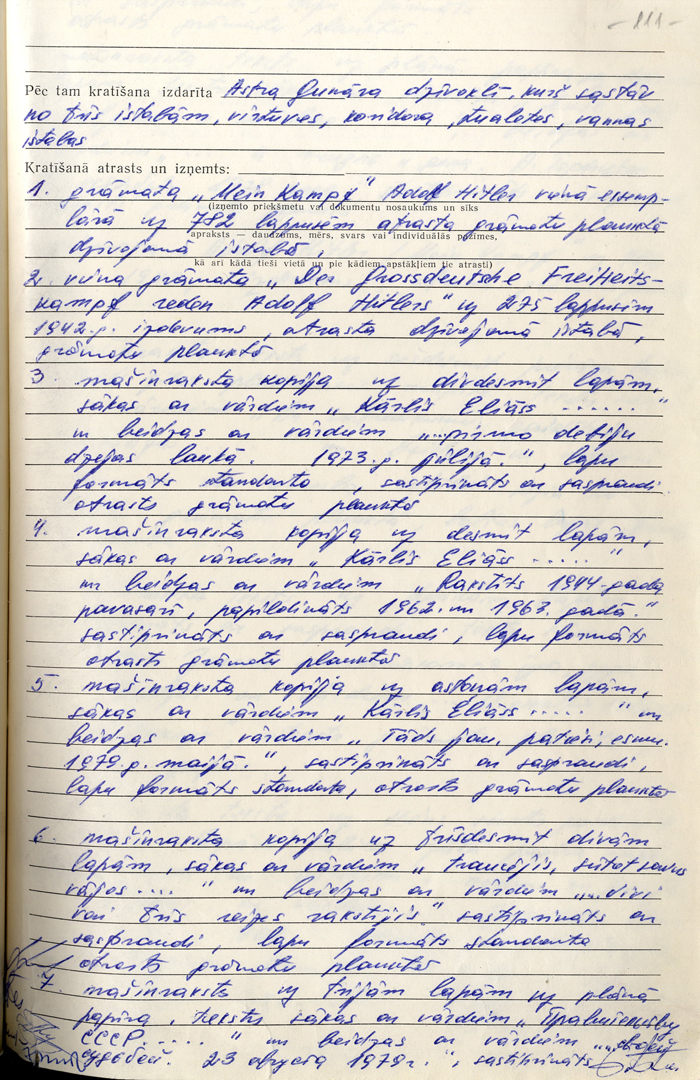 - 111 -
Pēc tam kratīšana izdarīta Astra Gunāra dzīvoklī, kurš sastāv
no trīs istabām, virtuves, koridora, tualetes, vannas
istabas
Kratīšanā atrasts un izņemts:
1. grāmata „Mein Kampf" Adolf Hitler vienā eksemp-
(izņemto priekšmetu vai dokumentu nosaukums un sīks
lārā uz 782 lappusēm atrasta grāmatu plauktā
apraksts — daudzums, mērs, svars vai individuālās pazīmes,
dzīvojamā istabā,
kā arī kādā tieši vietā un pie kādiem apstākļiem tie atrasti)
2. viena grāmata „Der Grossdeutsche Freiheits-
kampf reden Adolf Hitlers" uz 275 lappusēm
1942.g. izdevums, atrasta dzīvojamā istabā,
grāmatu plauktā
3. mašīnraksta kopija uz divdesmit lapām,
sākas ar vārdiem „Kārlis Eliāss ......"
un beidzas ar vārdiem „...pirmo debiju
dzejas laukā. 1973.g. jūlijā.", lapu
formāts standarta, sastiprināts ar saspraudi
atrasts grāmatu plauktā
4. mašīnraksta kopija uz desmit lapām,
sākas ar vārdiem „Kārlis Eliāss ....."
un beidzas ar vārdiem „Rakstīts 1944-gada
pavasarī, papildināts 1962. un 1963. gadā."
sastiprināts ar saspraudi, lapu formāts
atrasts grāmatu plauktā
5. mašīnraksta kopija uz astoņām lapām,
sākas ar vārdiem „Kārlis Eliāss ....." un
beidzas ar vārdiem „Tāds jau, patiesi, esmu.
1979.g. maijā.", sastiprināts ar saspraudi,
lapu formāts standarta, atrasts grāmatu plauktā
6. mašīnraksta kopija uz trīsdesmit divām
lapām, sākas ar vārdiem „
.... " un beidzas ar vārdiem „... divi
vai trīs reizes rakstījis" sastiprināts ar
saspraudi, lapu formāts standarta
atrasts grāmatu plauktā
7. mašīnraksts uz trijām lapām uz plānā
papīra, teksts sākas ar vārdiem „Правительству
СССР. ...." un beidzas ar vārdiem „
судьбой. 23 августа 1979г.", sastiprināts